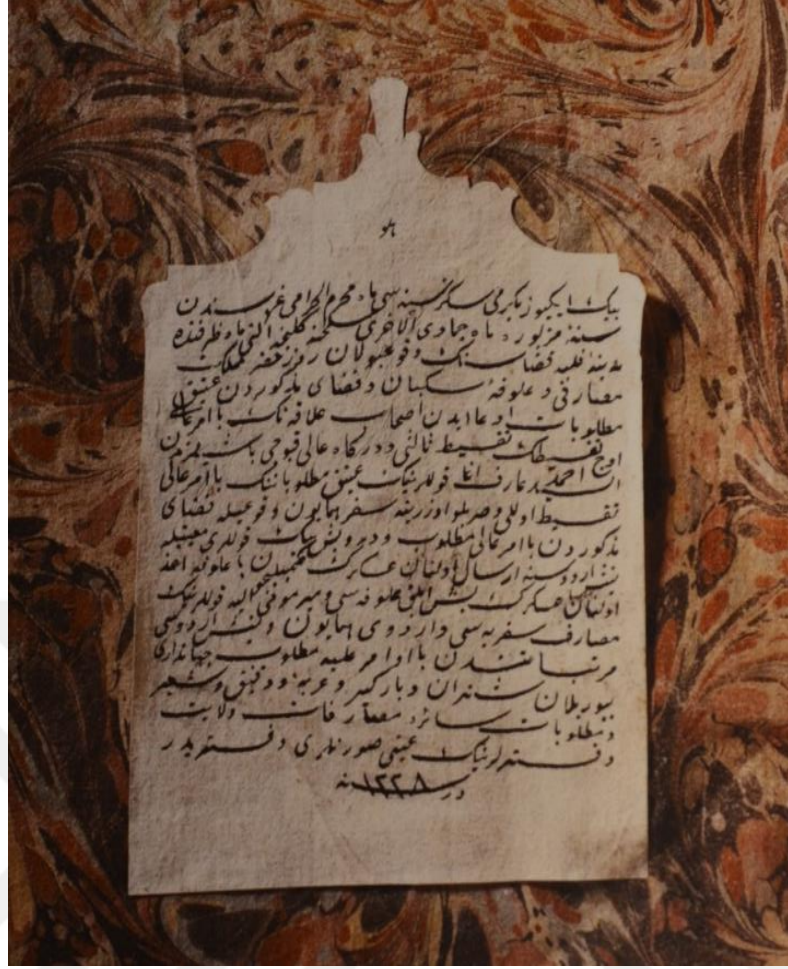 بيك ايكيوز يكرمى سكز سنه سى ماه محرم الحرامى غره سندن
سنهٔ مزبوره ماه جمادى الاخرى سلخنه كلنجه التى ماه ظرفنده
مدينهٔ قضاسنك وقوعبولان روز خضر مملكت
مصارفى و علوفهٔ سكبان و قضاى مذكوردن عتيق
مطلوبات ادعا ايدن اصحاب علاقه نك با امر عالى
اوچ تقسيطك تقسيط ثالثى و دركاه عالى قپوجى باشيلرندن
السيد احمد عارف اغا قوللرينك عتيق مطلوباتنك با امر عالى
تقسيط اوللى و اوزرينه سفر همايون وقوعيله قضاى
مذكوردن با امر عالى مطلوب و درويش بك قوللرى معيتيله
اردوسنه ارسال اولنان عسكرك با علوفه اخذ
اولنان عسكرك بش ايلق علوفه سى و قوللرينك
مصارف سفريه سى و اردوى همايون و اردوسى
مرتباتندن با اوامر عليه مطلوب
بيوريلان شتران و باركير و عربه و دقيق و شعير
و مطلوبات سائره مصارفات ولايت
دفترلرينك عينى صورتلرى دفتريدر
در سنه ١٢٢٨